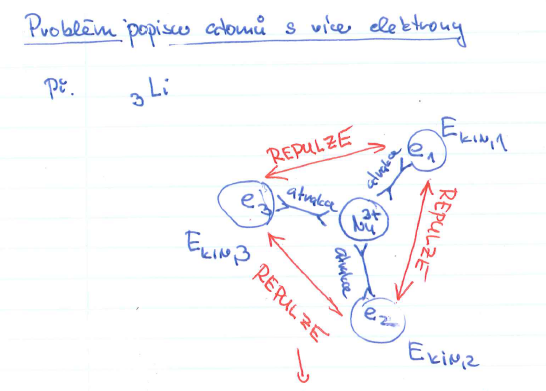 Problém popisu atomů s více elektrony
Př. ₃Li
REPULZE
e₁
E KIN,1
atrakce
e₃
atrakce
Nu³⁺
REPULZE
E KIN,3
atrakce
REPULZE
e₂
E KIN,2